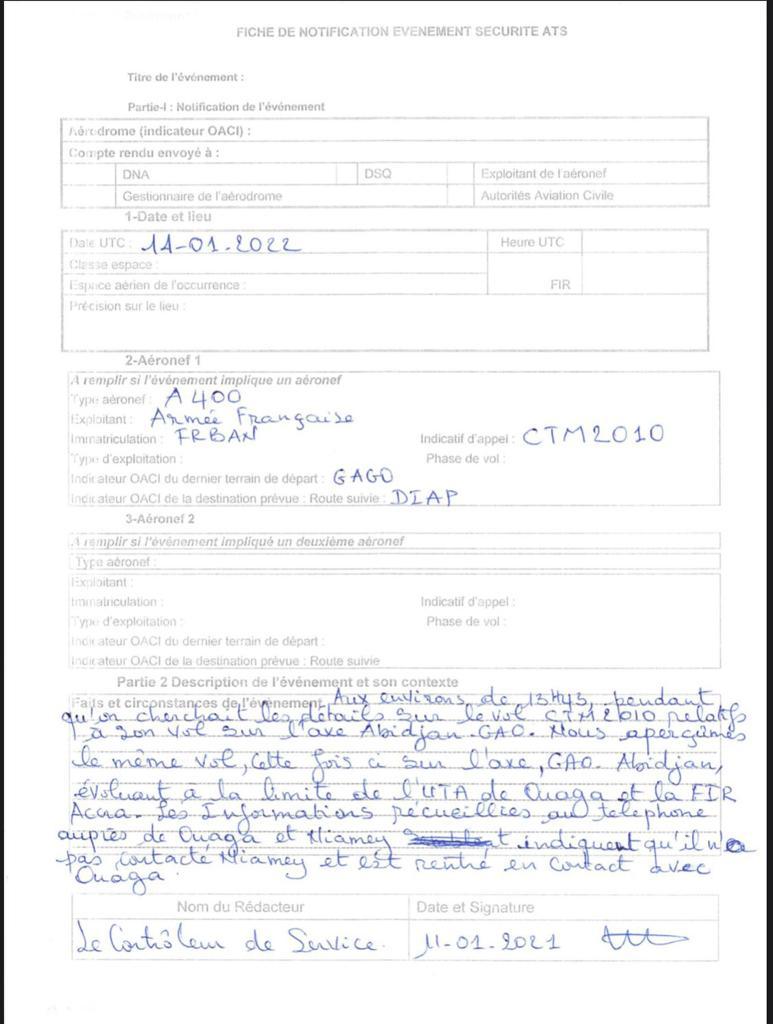 FICHE DE NOTIFICATION EVENEMENT SECURITE ATS
Titre de l'événement :
Partie-I : Notification de l'événement
Aérodrome (indicateur OACI) :
Compte rendu envoyé à :
DNA DSQ Exploitant de l'aéronef
Gestionnaire de l'aérodrome Autorités Aviation Civile
1-Date et lieu
Date UTC : 11-01-2022 Heure UTC
Classe espace :
Espace aérien de l'occurrence : FIR
Précision sur le lieu :
2-Aéronef 1
A remplir si l'événement implique un aéronef
Type aéronef : A 400
Exploitant : Armée Française
Immatriculation : FRBAN Indicatif d'appel : CTM2010
Type d'exploitation : Phase de vol :
Indicateur OACI du dernier terrain de départ : GAGO
Indicateur OACI de la destination prévue : Route suivie : DIAP
3-Aéronef 2
A remplir si l'événement impliqué un deuxième aéronef
Type aéronef :
Exploitant :
Immatriculation : Indicatif d'appel :
Type d'exploitation : Phase de vol :
Indicateur OACI du dernier terrain de départ :
Indicateur OACI de la destination prévue : Route suivie
Partie 2 Description de l'événement et son contexte
Faits et circonstances de l'événement Aux environs de 13H43, pendant
qu'on cherchait les détails sur le vol CTM2010 relatifs
à son vol sur l'axe Abidjan-GAO. Nous aperçûmes
le même vol, Cette fois ci sur l'axe, GAO-Abidjan,
évoluant à la limite de l'UTA de Ouaga et la FIR
Accra. Les Informations recueillies au téléphone
auprès de Ouaga et Niamey indiquent qu'il n'a
pas contacté Niamey et est rentré en contact avec
Ouaga.
Nom du Rédacteur Date et Signature
Le Contrôleur de Service. 11-01-2021